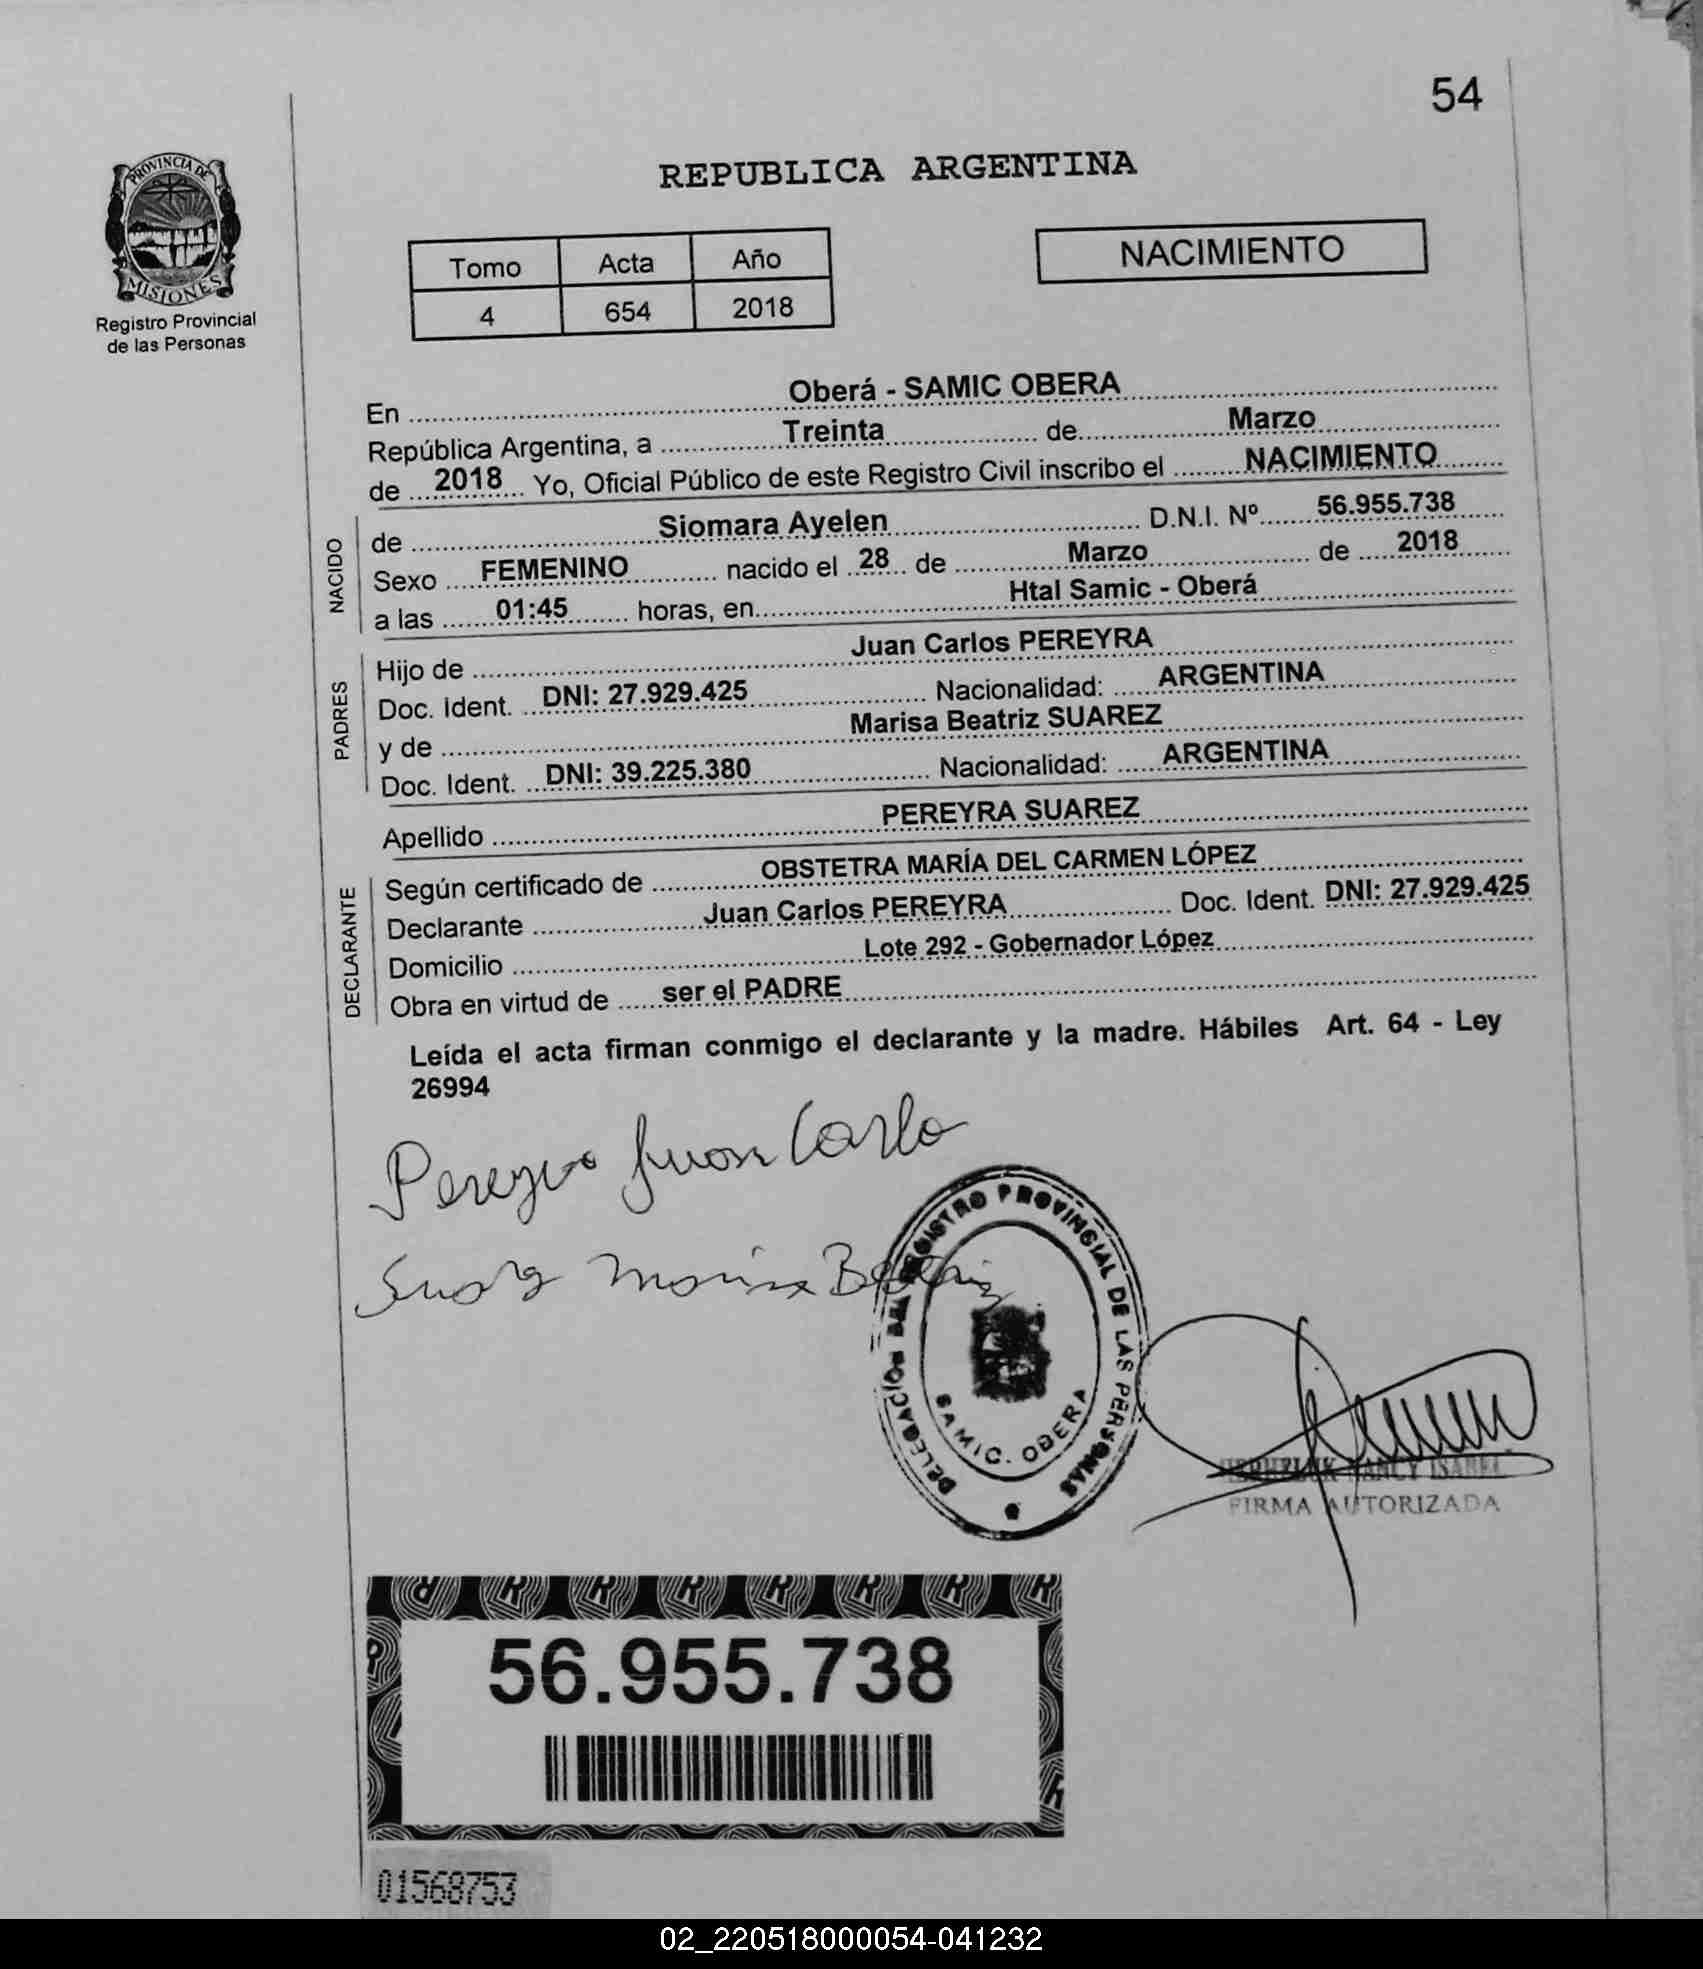 54
PROVINCIA DE
MISIONES
Registro Provincial
de las Personas
REPUBLICA ARGENTINA
NACIMIENTO
Tomo Acta Año
4 654 2018
En Oberá - SAMIC OBERA
República Argentina, a Treinta de Marzo
de 2018 Yo, Oficial Público de este Registro Civil inscribo el NACIMIENTO
NACIDO
de Siomara Ayelen D.N.I. Nº 56.955.738
Sexo FEMENINO nacido el 28 de Marzo de 2018
a las 01:45 horas, en Htal Samic - Oberá
PADRES
Hijo de Juan Carlos PEREYRA
Doc. Ident. DNI: 27.929.425 Nacionalidad: ARGENTINA
y de Marisa Beatriz SUAREZ
Doc. Ident. DNI: 39.225.380 Nacionalidad: ARGENTINA
Apellido PEREYRA SUAREZ
DECLARANTE
Según certificado de OBSTETRA MARÍA DEL CARMEN LÓPEZ
Declarante Juan Carlos PEREYRA Doc. Ident. DNI: 27.929.425
Domicilio Lote 292 - Gobernador López
Obra en virtud de ser el PADRE
Leída el acta firman conmigo el declarante y la madre. Hábiles Art. 64 - Ley
26994
Pereyra Juan Carlo
Suarez Marisa Beatriz
DELEGACION DEL REGISTRO PROVINCIAL DE LAS PERSONAS
SAMIC. OBERA
NANCY ISABEL
FIRMA AUTORIZADA
56.955.738
01568753
02_220518000054-041232